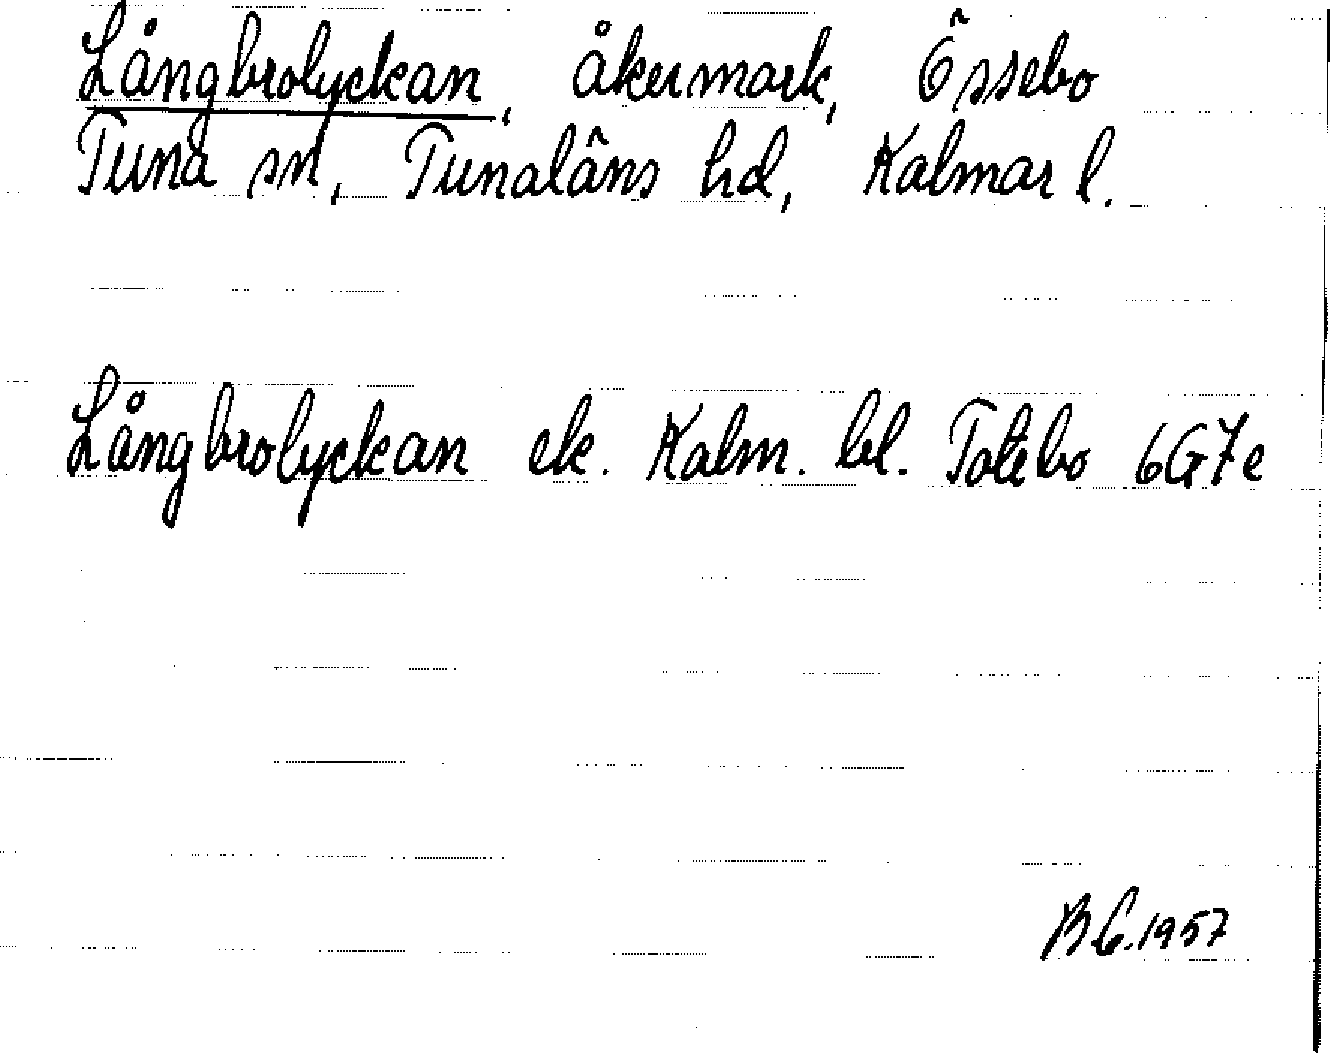 Långbrolyckan, åkermark, Össebo
Tuna sn, Tunaläns hd, Kalmar l.
Långbrolyckan ek. Kalm. bl. Totebo 6G7e
BC.1957